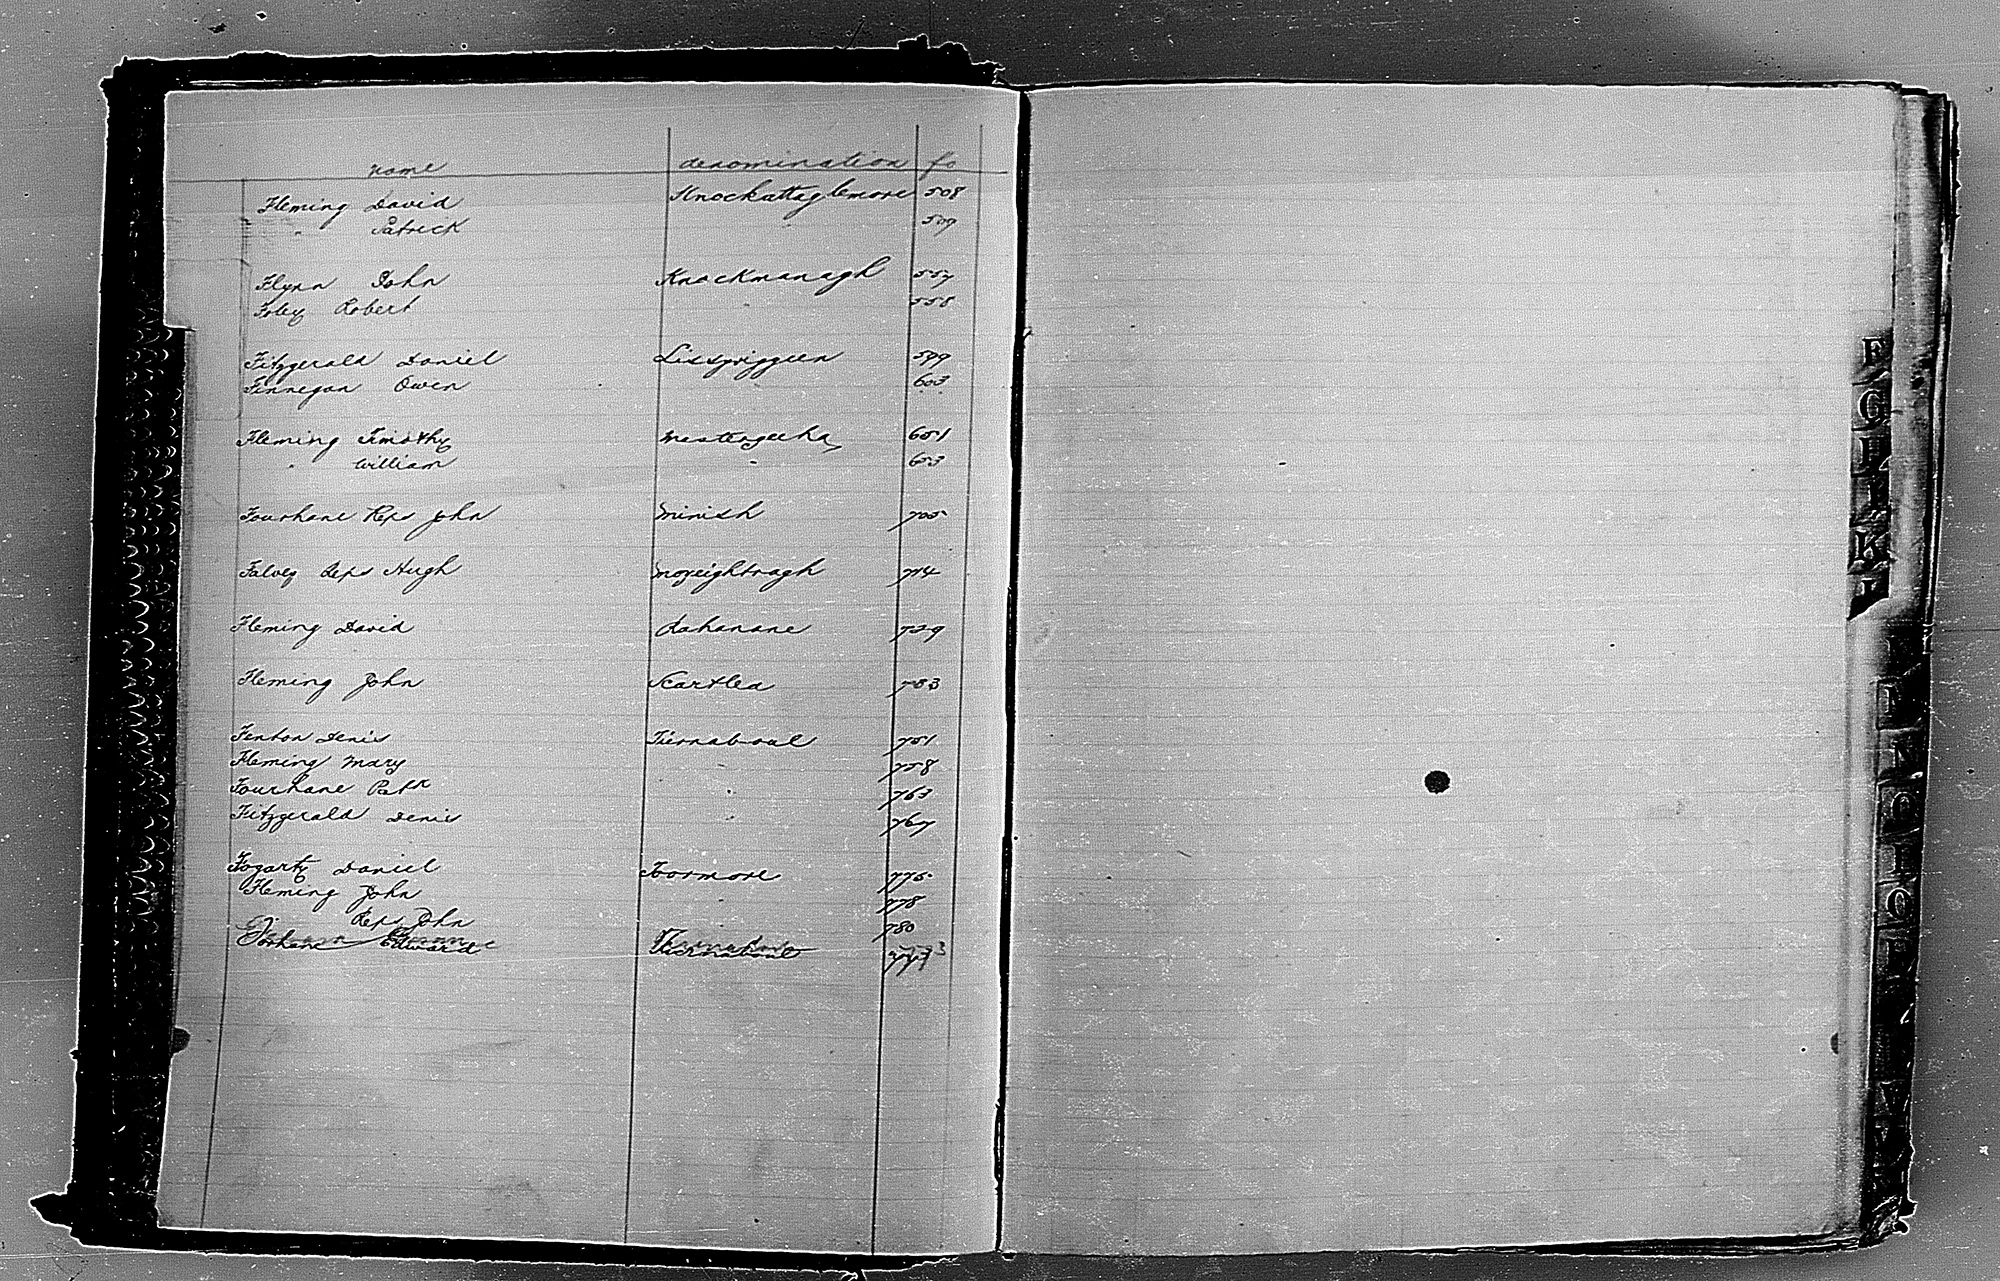 name denomination fo
Fleming David Knockattaglemore 508
" Patrick 509
Flynn John Knockmanagh 557
Foley Robert 558
Fitzgerald Daniel Lissyviggeen 599
Finnegan Owen " 603
Fleming Timothy Mastergeeha 651
" William " 653
Fourhane Reps John Minish 705
Falvey Reps Hugh Moyeightragh 714
Fleming David Rahanane 729
Fleming John Scartlea 733
Fenton Denis Tiernaboul 751
Fleming Mary 758
Fourhane Patk " 763
Fitzgerald Denis " 767
Fogarty Daniel Toormore 775
Fleming John 778
Reps John 780
Edward Tiernaboul
F
G
H
K